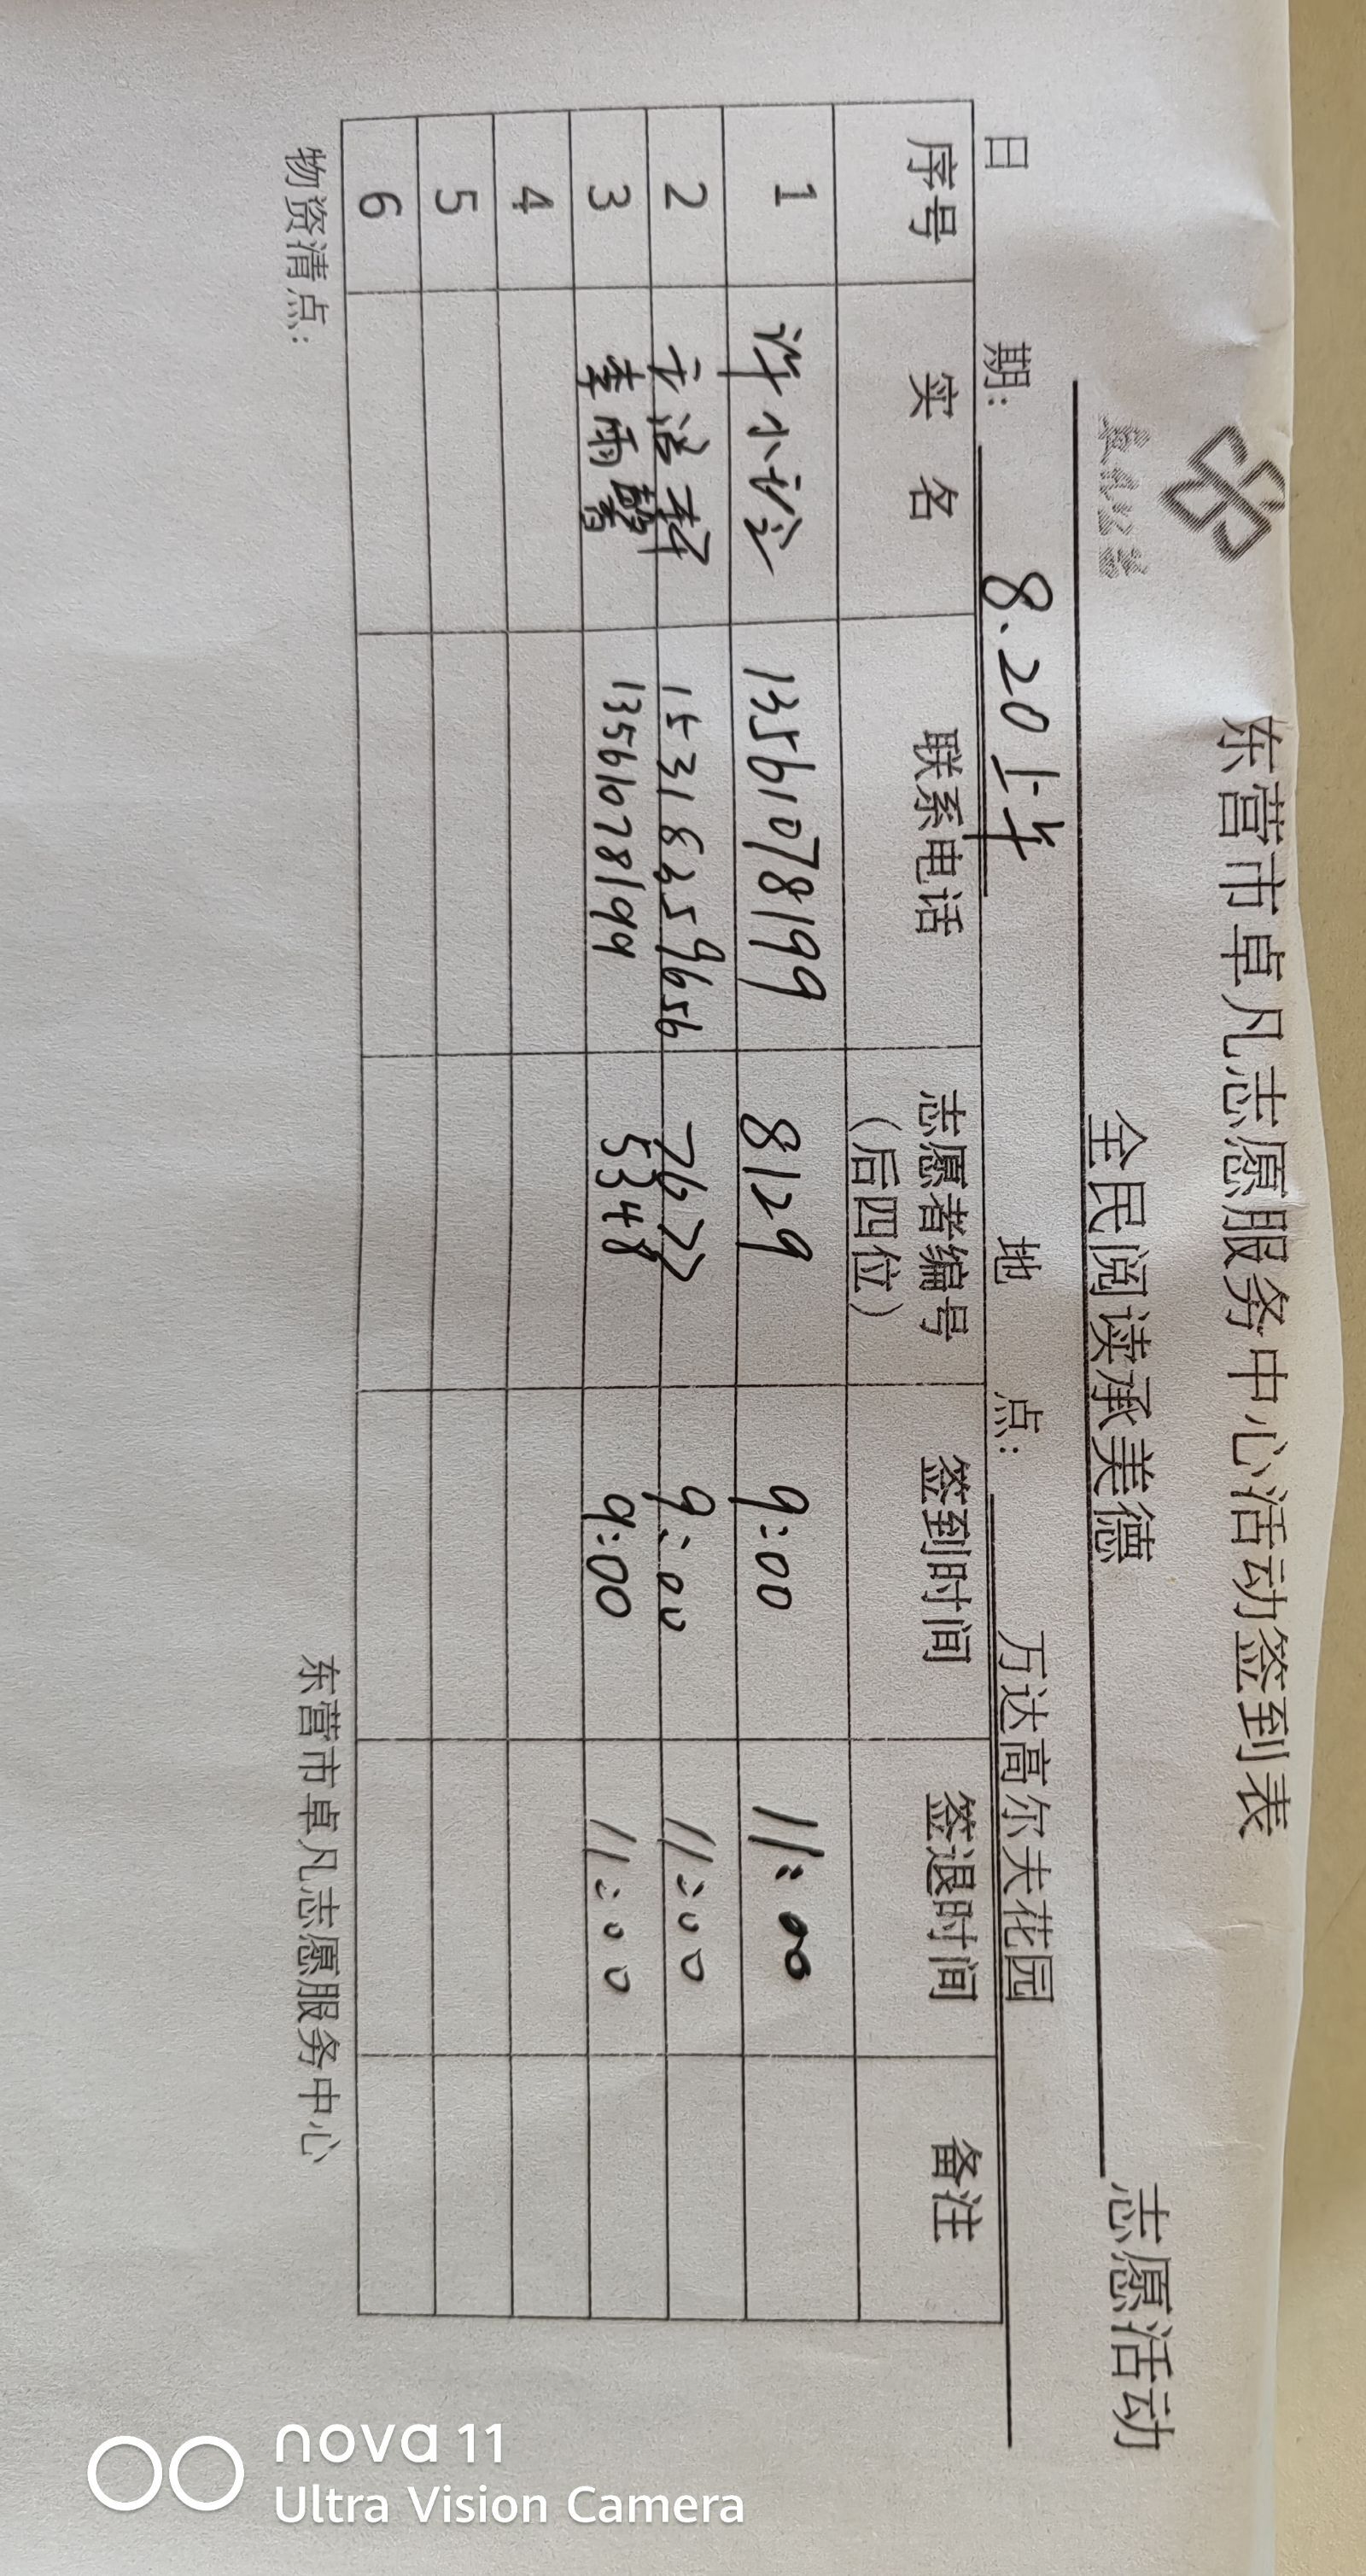 东营市卓凡志愿服务中心活动签到表
全民阅读承美德 志愿活动
日 期: 8.20上午 地 点: 万达高尔夫花园
序号 实 名 联系电话 志愿者编号（后四位） 签到时间 签退时间 备注
1 许小玲 13561078199 8129 9:00 11:00
2 15318359656 7677 9:00 11:00
3 李雨馨 13561078199 5348 9:00 11:00
4
5
6
物资清点:
东营市卓凡志愿服务中心
nova 11
Ultra Vision Camera